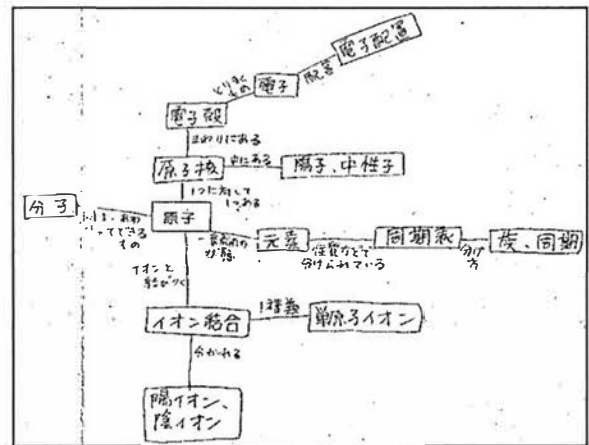 電子配置
配置
電子
とりまく
もの
電子殻
まわりにある
原子核
中にある
陽子、中性子
1つに対して
1つある
分子
ってできる
もの
原子
状態
元素
性質などで
分けられている
周期表
分け
方
族、周期
イオンと
結びつく
イオン結合
1種類
単原子イオン
分かれる
陽イオン、
陰イオン